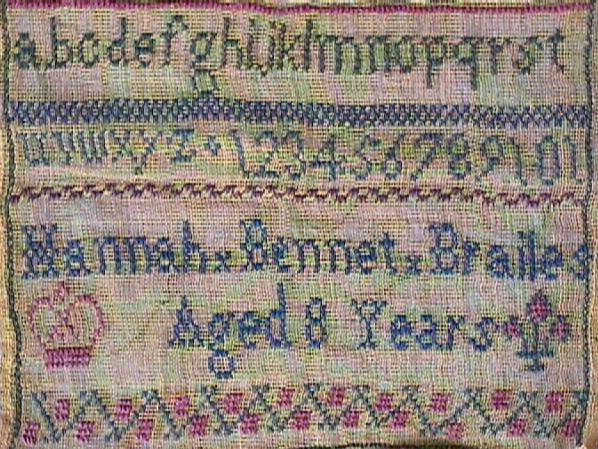 abcdefghijklmnopqrst
uvwxyz 1234567891011
Hannah x Bennet x Brailes
Aged 8 Years